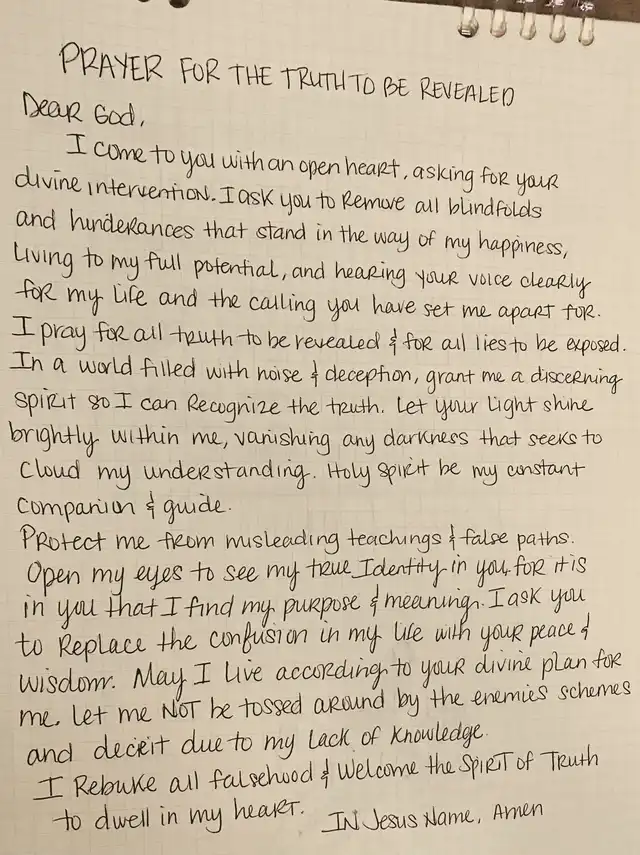 PRAYER FOR THE TRUTH TO BE REVEALED
Dear God,
I come to you with an open heart, asking for your
divine intervention. I ask you to remove all blindfolds
and hinderances that stand in the way of my happiness,
living to my full potential, and hearing your voice clearly
for my life and the calling you have set me apart for.
I pray for all truth to be revealed & for all lies to be exposed.
In a world filled with noise & deception, grant me a discerning
spirit so I can recognize the truth. Let your light shine
brightly within me, vanishing any darkness that seeks to
cloud my understanding. Holy Spirit be my constant
companion & guide.
Protect me from misleading teachings & false paths.
Open my eyes to see my true Identity in you, for it is
in you that I find my purpose & meaning. I ask you
to replace the confusion in my life with your peace &
wisdom. May I live according to your divine plan for
me. Let me NOT be tossed around by the enemies schemes
and deceit due to my lack of knowledge.
I Rebuke all falsehood & Welcome the SPIRIT of Truth
to dwell in my heart. IN Jesus Name, Amen